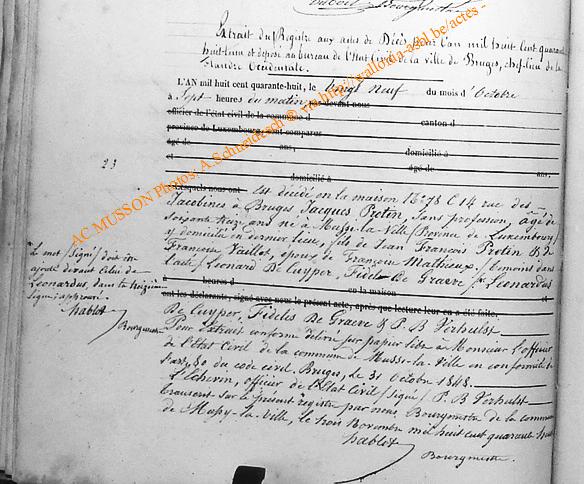 Extrait du Registre aux actes de Décès pour l'an mil huit cent quarante
huit tenu et déposé au bureau de l'Etat Civil de la ville de Bruges, chef-lieu de la
Flandre Occidentale.
L'AN mil huit cent quarante-huit, le vingt neuf du mois d'Octobre
à Sept heures du matin, par devant nous
officier de l'état civil de la commune d canton d
province de Luxembourg sont comparus
âgé de ans, domicilié à
et âgé de ans,
domicilié à
Lesquels nous ont Est décédé en la maison N° 78 C 14 rue des
Jacobines à Bruges Jacques Protin, Sans profession, âgé de
soixante treize ans né à Mussy-la-Ville (Province de Luxembourg)
y domicilié en dernier lieu, fils de Jean François Protin & de
Françoise Vaillot, époux de Françoise Mathieux, témoins dans
l'acte, Léonard De Cuyper, Fidèle De Graeve (Signé) Leonardus
à heures d en la maison et
ont les déclarants, signé avec nous le présent acte, après que lecture leur en a été faite,
De Cuyper, Fideles De Graeve & P. B Verhulst
Pour extrait conforme délivré sur papier libre à Monsieur l'officier
de l'état Civil de la commune de Musse-la-Ville en conformité de
l'art. 80 du code civil, Bruges, le 31 Octobre 1848.
L'Echevin, officier de l'Etat Civil (signé) P. B Verhulst
Transcrit sur le présent registre par nous, Bourgmestre de la commune
de Mussy-la-Ville, le trois Novembre mil huit cent quarante huit
Hablot
Bourgmestre
23
Le mot (Signé) doit être
ajouté devant celui de
Leonardus, dans la
ligne approuvé
Hablot
Bourgmestre
AC MUSSON Photos: A.Schmadebach © via http://wallonia-asbl.be/actes -